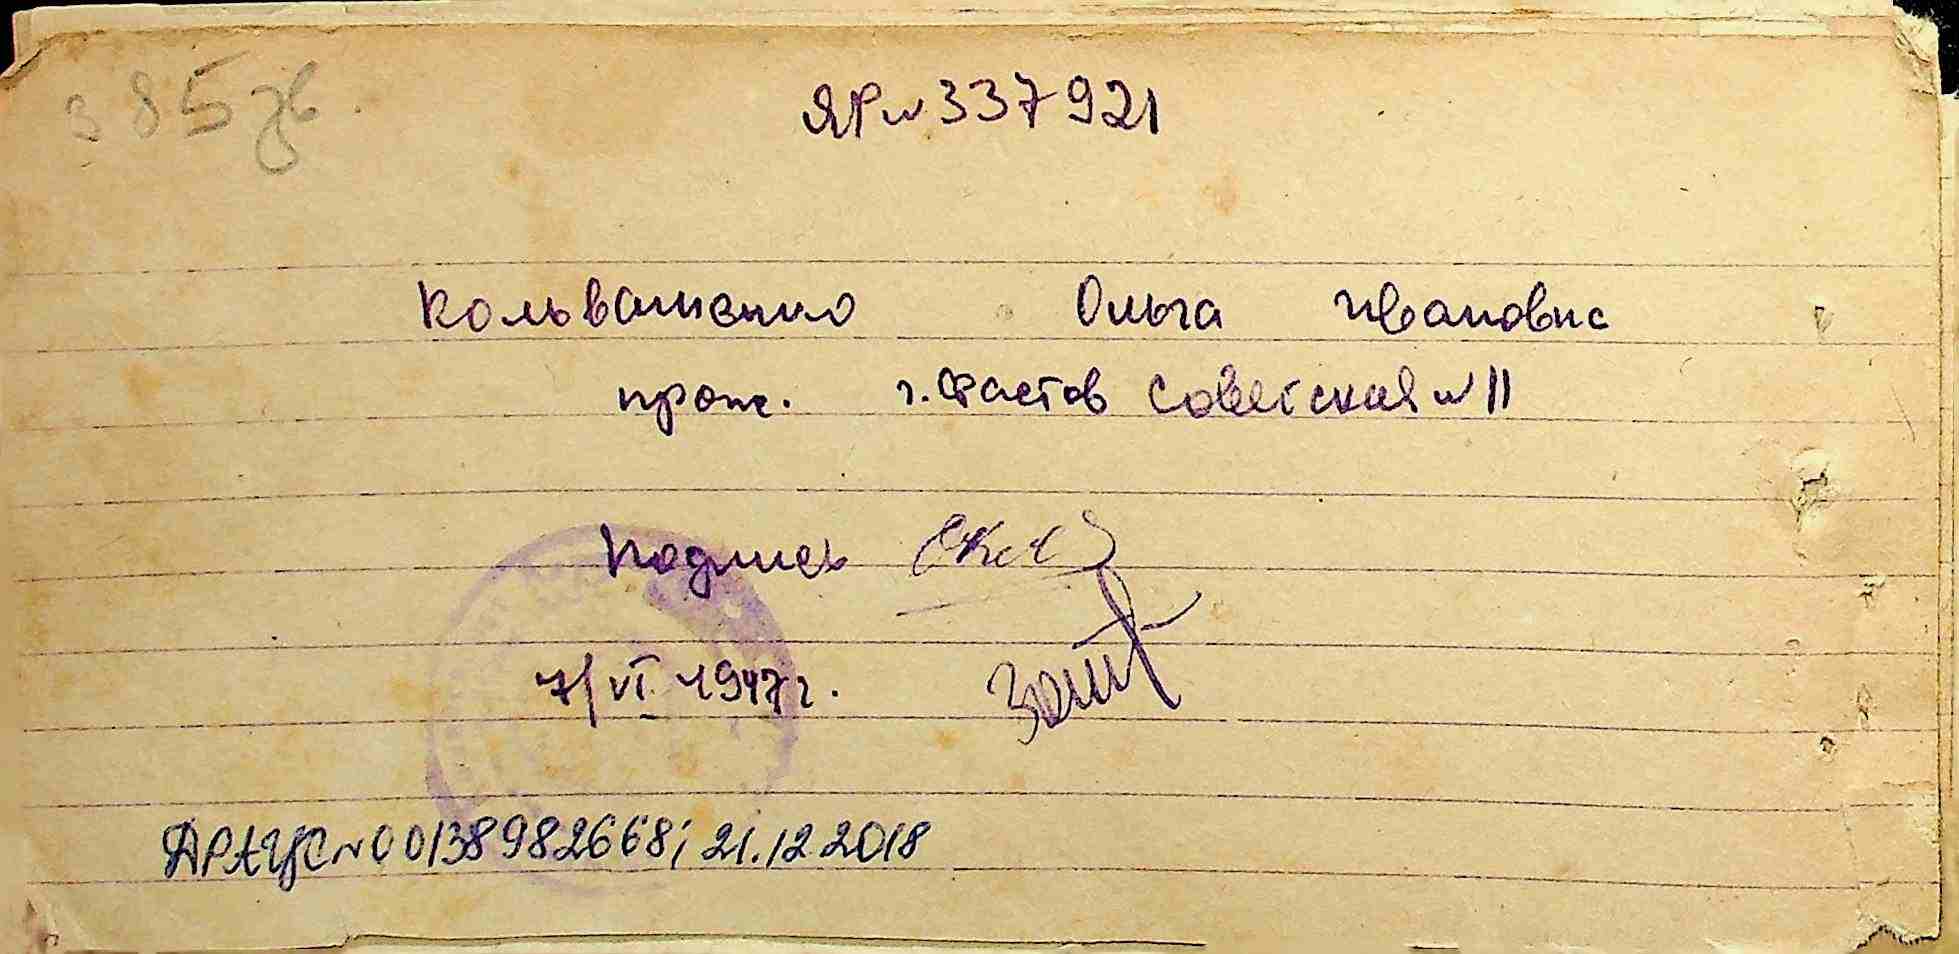 385 зв.
ЯР № 337921
Кольвашенко Ольга Ивановна
прож. г. Фастов Советская № 11
Подпись
7/VI 1947 г.
ДРАЦС № 00138982668; 21.12.2018